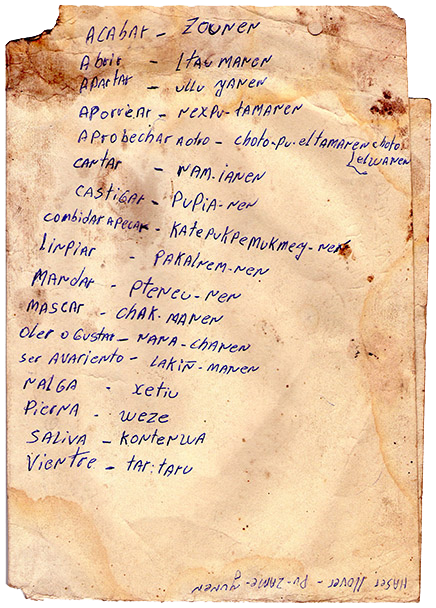 ACABAR - ZOUNEN
Abrir - Ltau manen
Apartar - ullu yanen
APorrear - nexpu-tamanen
Aprobechar aotro - choto-pu.eltamanen choto
Lelwanen
cantar - NAM-ianen
CASTIGAR - PUPiA-nen
combidar apecar - KatepuKpemuKmey-nen
LinPiAr - PAKALnem-nen
MANdar - Ptencu-nen
MASCAR - CHAK-MANEN
Oler o Gustar - NANA-CHANEN
ser AVArieNto - LAKiÑ-MANEN
NALGA - xetiu
Pierna - weze
SALiVA - KONTENWA
Vientre - tar:taru
HASer llover - Pu-zame-gunen